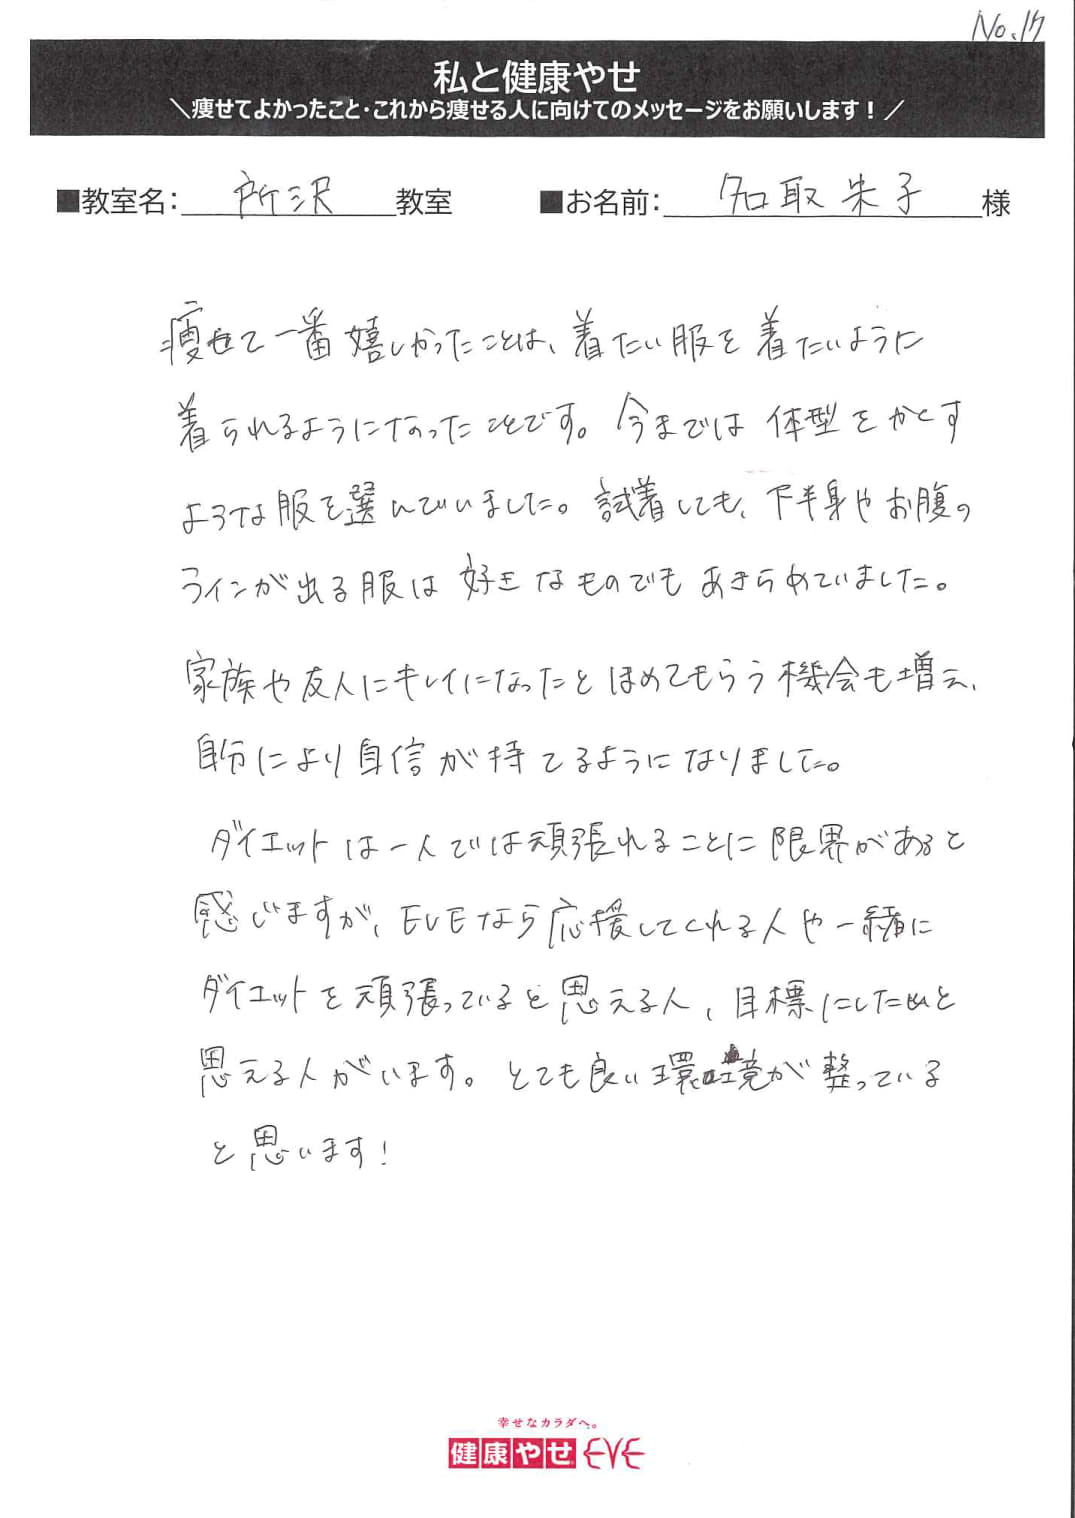 No.17
私と健康やせ
＼痩せてよかったこと・これから痩せる人に向けてのメッセージをお願いします！／
■教室名：所沢教室 ■お名前：名取朱子様
痩せて一番嬉しかったことは、着たい服を着たいように
着られるようになったことです。今までは体型をかくす
ような服を選んでいました。試着しても、下半身やお腹の
ラインが出る服は好きなものでもあきらめていました。
家族や友人にキレイになったとほめてもらう機会も増え、
自分により自信が持てるようになりました。
ダイエットは一人では頑張れることに限界があると
感じますが、EVEなら応援してくれる人や一緒に
ダイエットを頑張っていると思える人、目標にしたいと
思える人がいます。とても良い環境が整っている
と思います！
幸せなカラダへ。
健康やせEVE